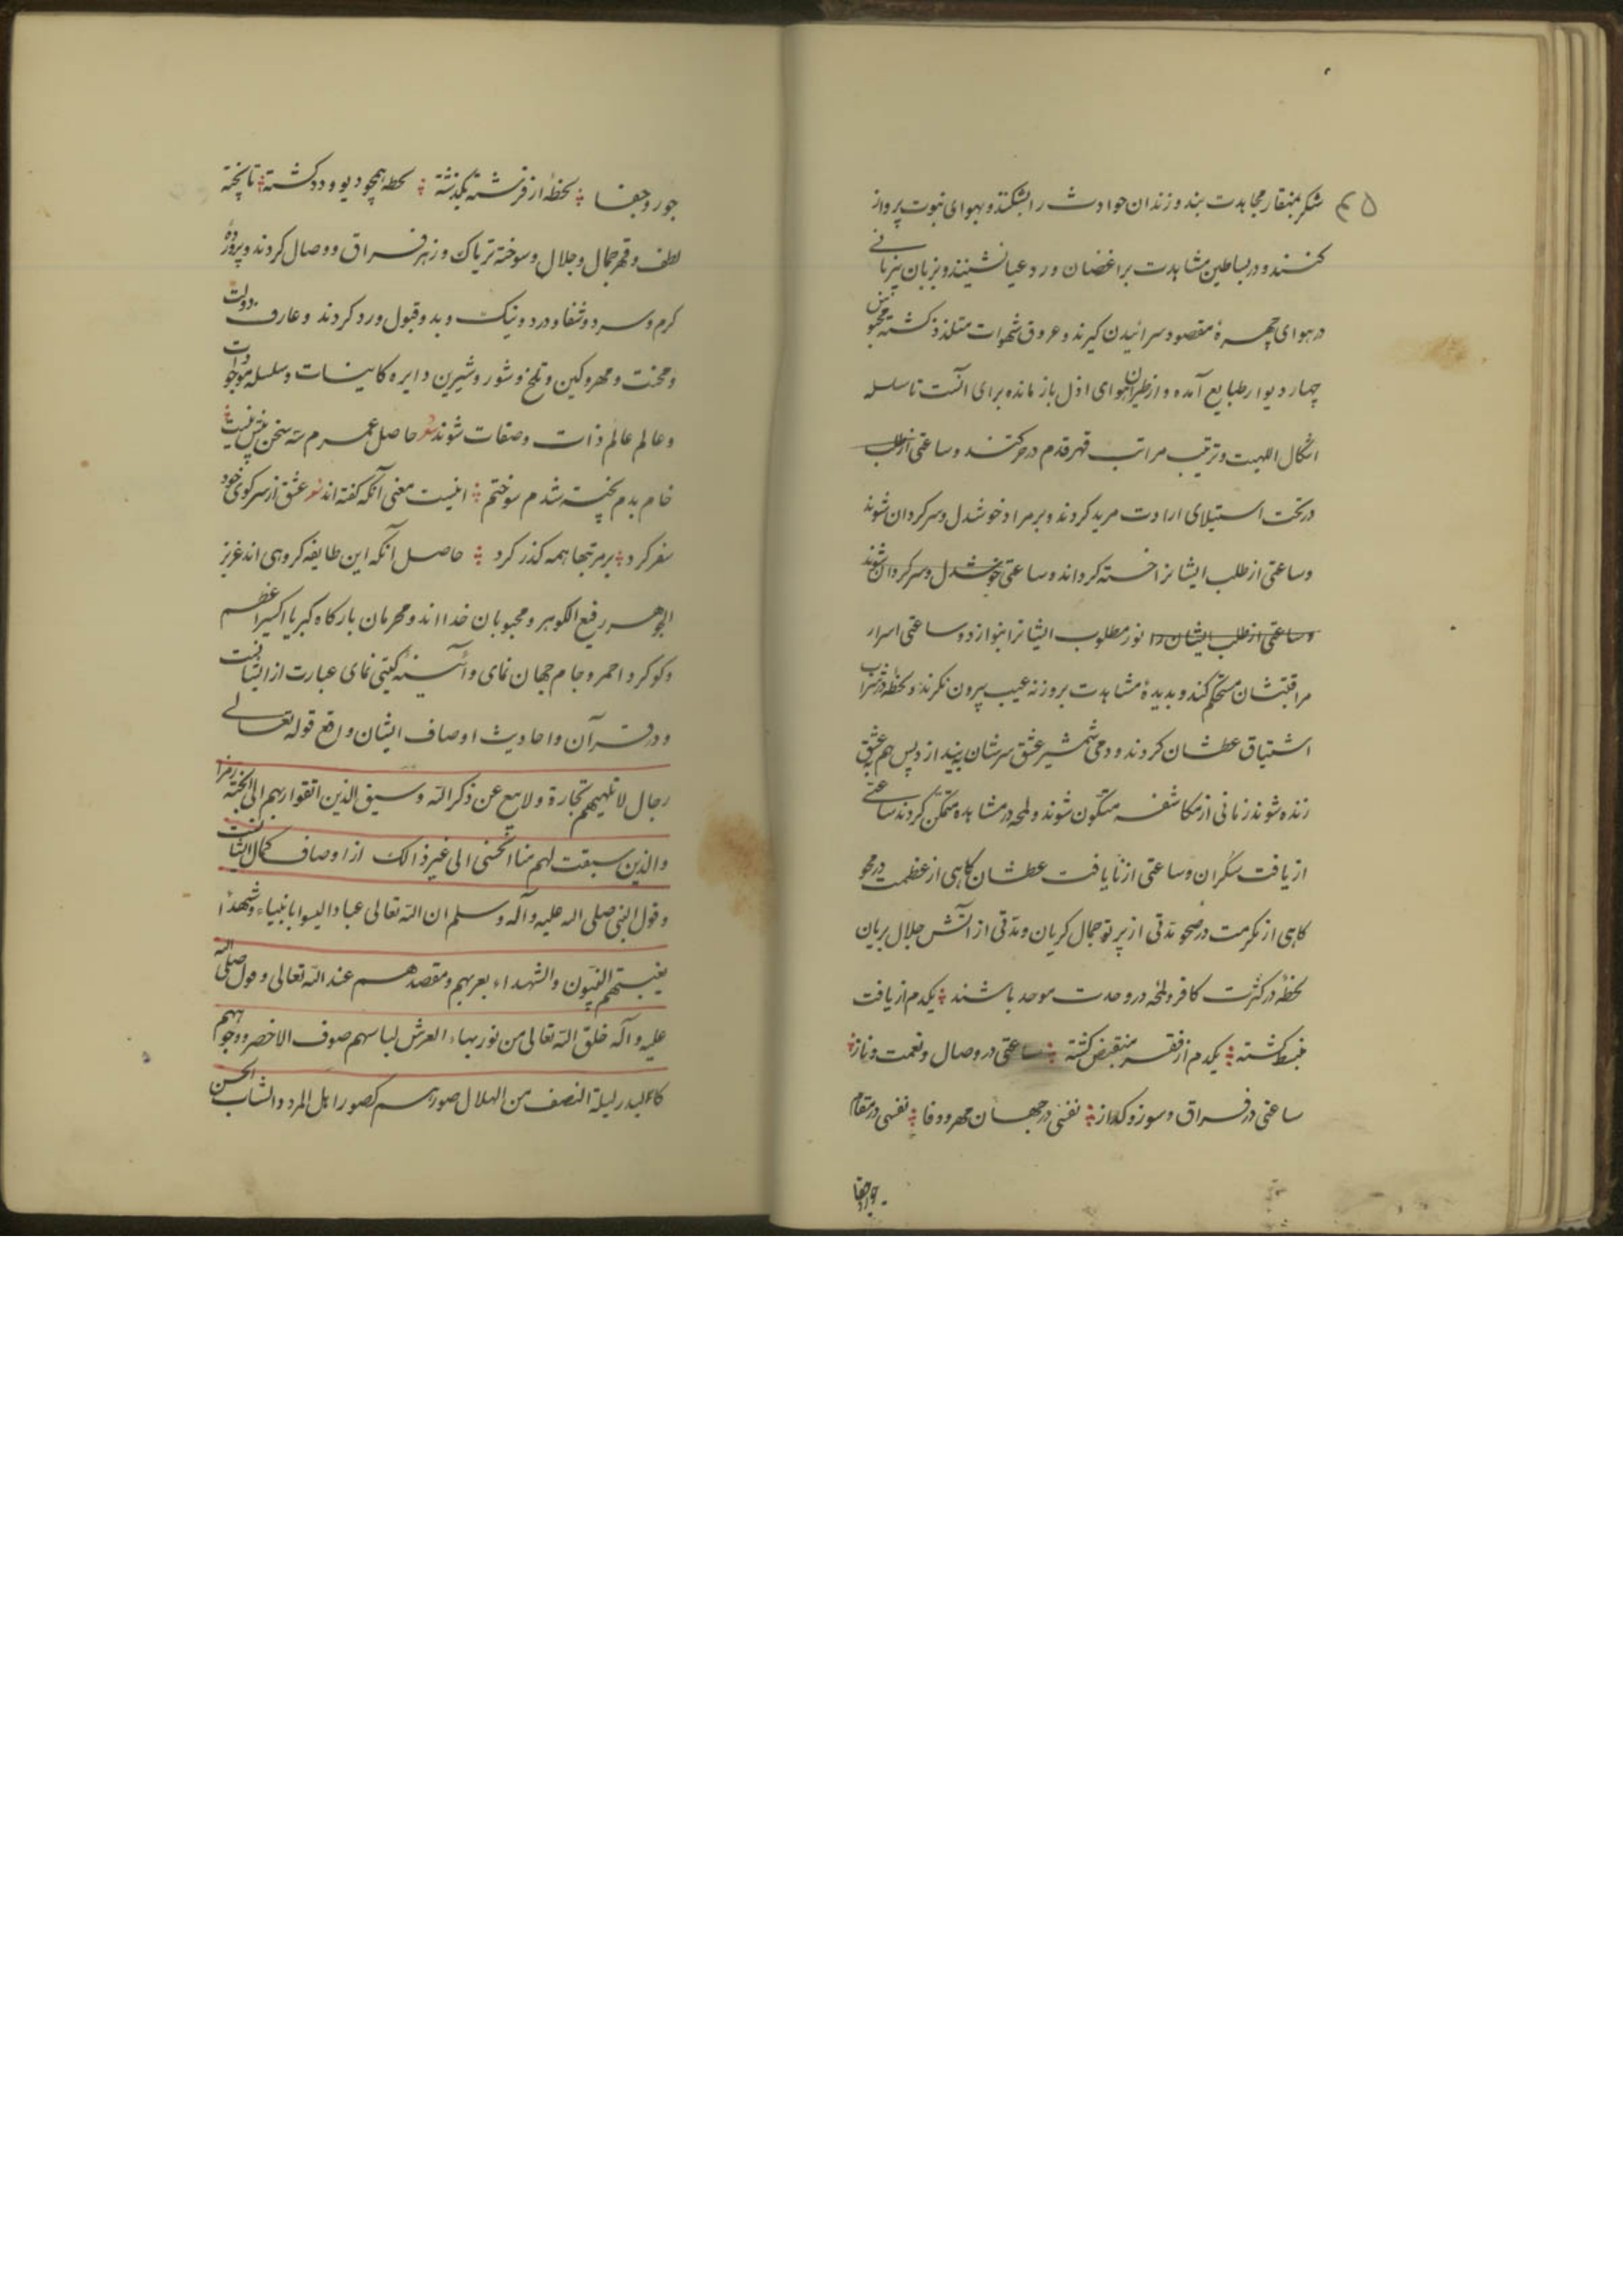 شکر بمنقار مجاهدت بند و زندان حوادث را بشکنند و بهوای نبوت پرواز
کنند و در بساطین مشاهدت بر اغضان ورد عیان نشینند و بزبان بیزبانی
در هوای چهرهٔ مقصود سرائیدن گیرند و عروق شهوات متلذذ گشته محبوس
چهار دیوار طبایع آمده و از طیران هوای ازل باز مانده برای آنست تا سلسله
اشکال اللهیت و ترتیب مراتب قهر قدم در حرکتند و ساعتی از طلب
در تحت استیلای ارادت مرید کردند و بر مراد خوشدل و سرکردان شوند
و ساعتی از طلب ایشانرا خسته کرداند و ساعتی خوشدل و سرکردان شوند
و ساعتی از طلب ایشان را نور مطلوب ایشانرا بنوازد و ساعتی اسرار
مراقبتشان مستحکم کند و بدیدهٔ مشاهدت بروزنه غیب بیرون نکرند و لحظهٔ در شراب
اشتیاق عطشان کردند و دمی شمشیر عشق سرشان بیندازد پس هم به عشق
زنده شوند زمانی از مکاشفه متکون شوند و لمحه در مشاهده متمکن کردند ساعتی
از یافت سکران و ساعتی از نایافت عطشان کاهی از عظمت در محو
کاهی از مکرمت در صحو مدتی از پرتو جمال کریان و مدتی از آتش جلال بریان
لحظهٔ در کثرت کافر و لمحهٔ در وحدت موحد باشند یکدم از یافت
منبسط کشته یکدم از فقر منقبض کشته ساعتی در وصال و نعمت و ناز
ساعتی در فراق و سوز و کداز نفسی در جهان مهر و وفا نفسی در مقام
جور و جفا
جور و جفا لحظهٔ از فرشته بگذشته لحظه همچو دیو و دد کشته تا پخته
لطف و قهر جمال و جلال و سوخته تریاک و زهر فراق و وصال کردند و پروردهٔ
کرم و سرد و شفا و درد و نیک و بد و قبول و رد کردند و عارف دولت
و محنت و مهر و کین و تلخ و شور و شیرین دایره کاینات و سلسله موجودات
و عالم عالم ذات و صفات شوند شعر حاصل عمرم سه سخن بیش نیست
خام بدم پخته شدم سوختم اینست معنی آنکه کفته اند شعر عشق از سر کوی خود
سفر کرد بر مرتبها همه کذر کرد حاصل آنکه این طایفه کروهی اند عزیز
الجوهر رفیع الکوهر و محبوبان خدا اند و محرمان بارکاه کبریا اکسیر اعظم
و کوکرد احمر و جام جهان نمای و آئینه کیتی نمای عبارت از ایشانست
و در قرآن و احادیث اوصاف ایشان واقع قوله تعالی
رجال لا تلهیهم تجارة ولا بیع عن ذکر الله وسیق الذین اتقوا ربهم الی الجنة زمرا
والذین سبقت لهم منا الحسنی الی غیر ذالک از اوصاف کمال ایشانست
و قول النبی صلی اله علیه و آله و سلم ان الله تعالی عبادا لیسوا بانبیاء و شهدا
یغبتهم النبیون والشهداء بعربهم ومقصدهم عند الله تعالی وقول صلی الله
علیه و آله خلق الله تعالی من نور بهاء العرش لباسهم صوف الاخضر ووجوههم
کالبدر لیلة النصف من الهلال صورهم کصور اهل المرد والشاب الحسن